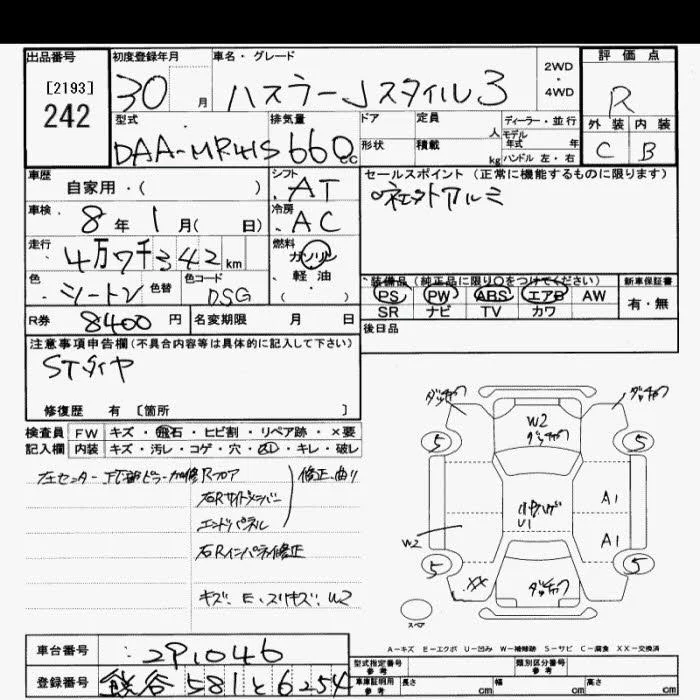 出品番号
[2193]
242
初度登録年月
30 月
車名・グレード
ハスラー Jスタイル3
2WD
・
4WD
評価点
R
外装 内装
C B
型式
DAA-MR41S
排気量
660cc
ドア
形状
定員
人
積載
kg
ディーラー・並行
モデル年式 年
ハンドル 左・右
車歴
自家用・( )
シフト
AT
セールスポイント(正常に機能するものに限ります)
車検
8年 1月( 日)
冷房
AC
走行
4万7千342km
燃料
ガソリン
・
軽油
・
( )
色
色替
色コード
DSG
装備品(純正品に限り○をつけてください)
PS PW ABS エアB AW
SR ナビ TV カワ
新車保証書
有・無
R券
8400円
名変期限 月 日
後日品
注意事項申告欄(不具合内容等は具体的に記入して下さい)
STタイヤ
修復歴 有 〔箇所 〕
検査員
記入欄
FW キズ・飛石・ヒビ割・リペア跡・×要
内装 キズ・汚レ・コゲ・穴・・キレ・破レ
左センター ピラー Rフロア
石Rサイドメンバー
エンドパネル
修正、曲り
石Rインパネ修正
キズ、E、スリキズ、W2
W2
5
5
U1
A1
A1
W2
5
5
XX
スペア
A-キズ E-エクボ U-凹み W-補修跡 S-サビ C-腐食 XX-交換済
車台番号
291046
登録番号
熊谷 581 と 6254
型式指定番号
参考
類別区分番号
参考
車庫証明用
参考
長さ cm
幅 cm
高さ cm